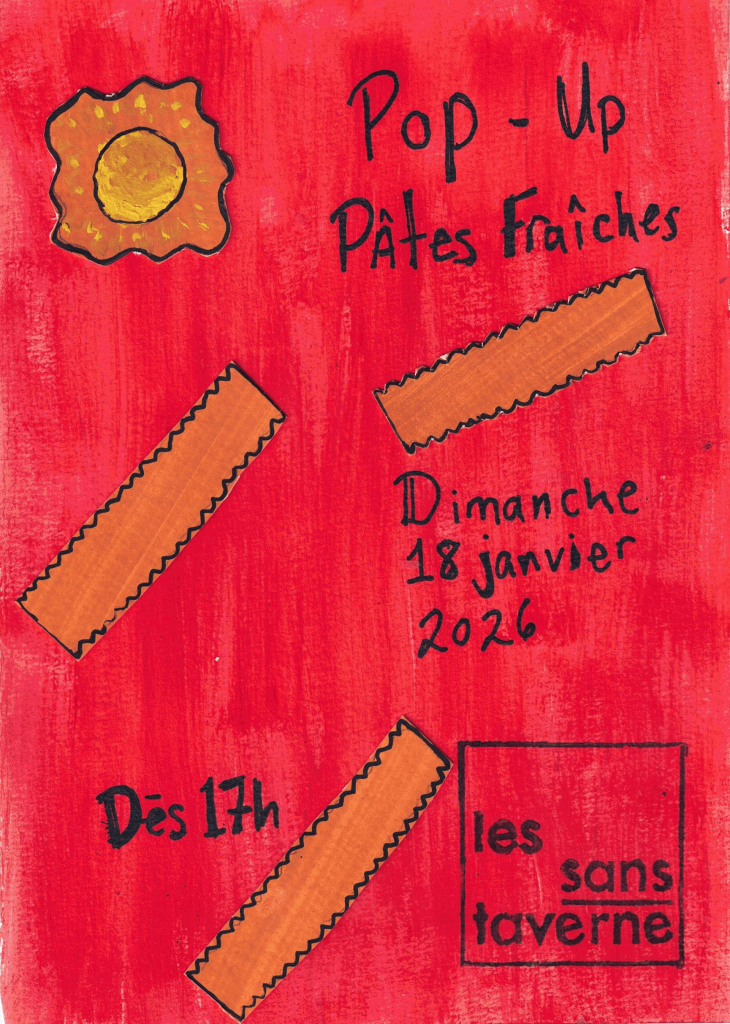 Pop - Up
Pâtes Fraîches
Dimanche
18 janvier
2026
Dès 17h
les
sans
taverne